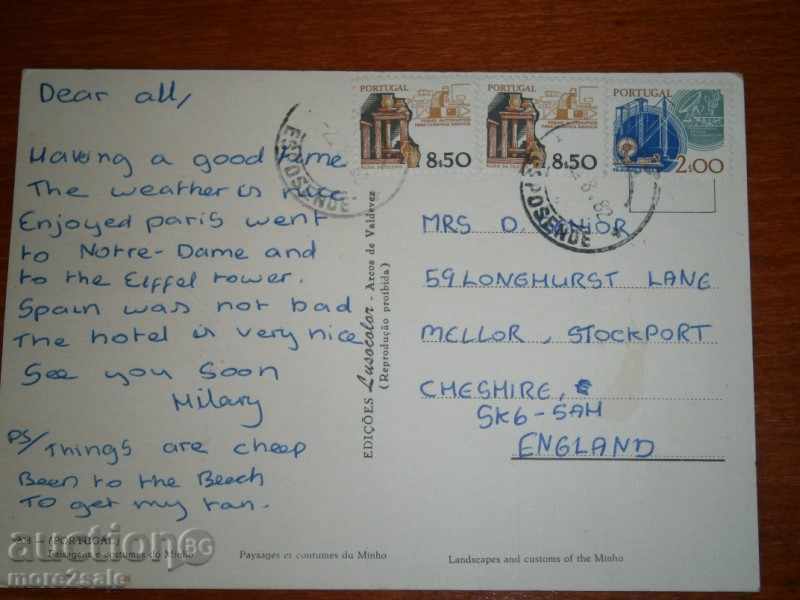 Dear all,
Having a good time
The weather is nice
Enjoyed paris went
to Notre-Dame and
to the Eiffel tower.
Spain was not bad
The hotel is very nice
See you soon
Hilary
PS/Things are cheap
Been to the Beech
To get my tan.
(PORTUGAL)
Paisagens e costumes do Minho
Paysages et coutumes du Minho
Landscapes and customs of the Minho
EDIÇÕES Lusocolor - Arcos de Valdevez
(Reprodução proibida)
PORTUGAL
8$50
PORTUGAL
8$50
PORTUGAL
2$00
ESPOSENDE
ESPOSENDE
MRS D.
59 LONGHURST LANE
MELLOR, STOCKPORT
CHESHIRE,
SK6-5AH
ENGLAND
auctionBG
more2sale